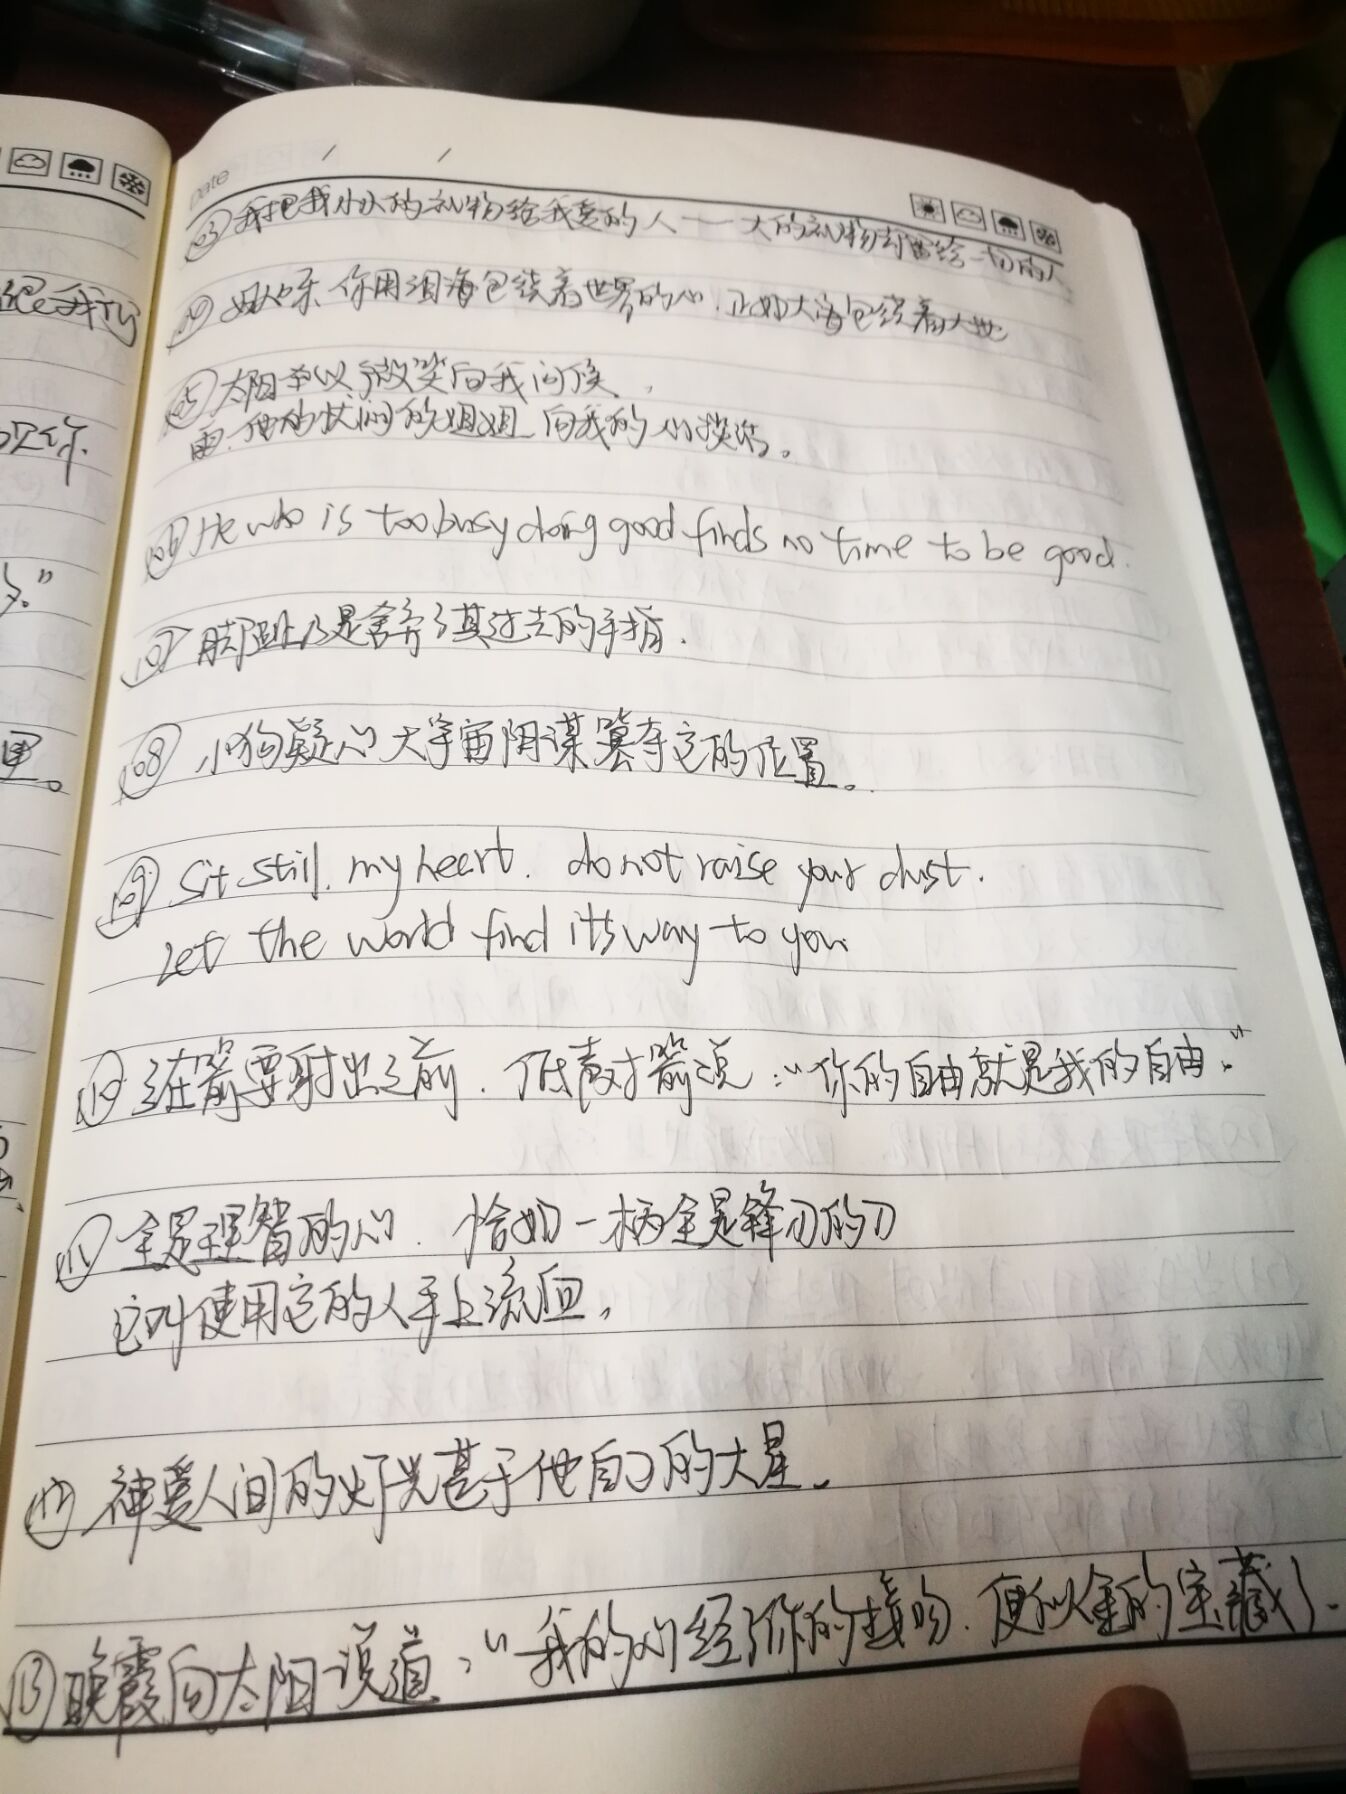 Date
03 我把我小小的礼物给我爱的人——大的礼物却留给一切的人
04 妇人乐，你用泪海包绕着世界的心，正如大海包绕着大地
05 太阳予以了微笑向我问候，
雨，他的忧闷的姐姐，向我的心谈话。
106 He who is too busy doing good finds no time to be good.
107 脚趾乃是舍弃了其过去的手指.
108 小狗疑心大宇宙阴谋篡夺它的位置。
109 Sit still, my heart. do not raise your dust.
Let the world find its way to you
110 弓在箭要射出之前，低声对箭说："你的自由就是我的自由."
111 全是理智的心，恰如一柄全是锋刃的刀
它叫使用它的人手上流血。
112 神爱人间的灯光甚于他自己的大星。
113 晚霞向太阳说道："我的心经了你的接吻，便似金的宝藏了.